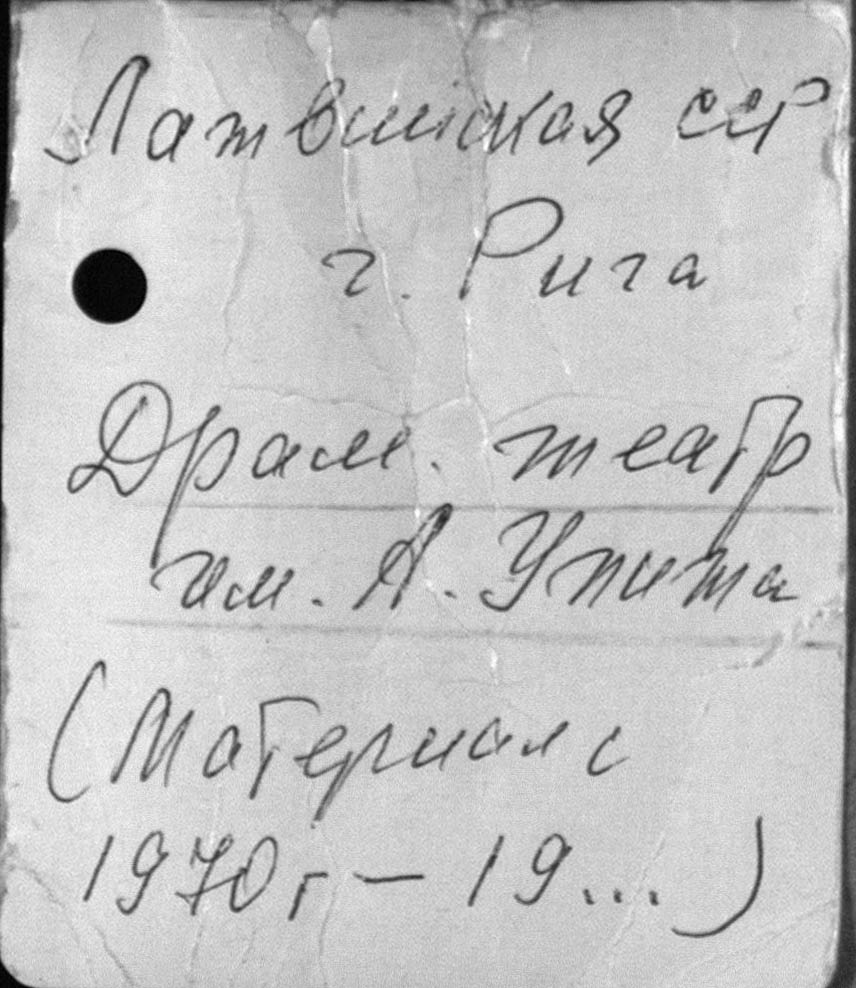 Латвийская ССР
г. Рига
Драм. театр
им. А. Упита
(Материал с
1970 г – 19...)